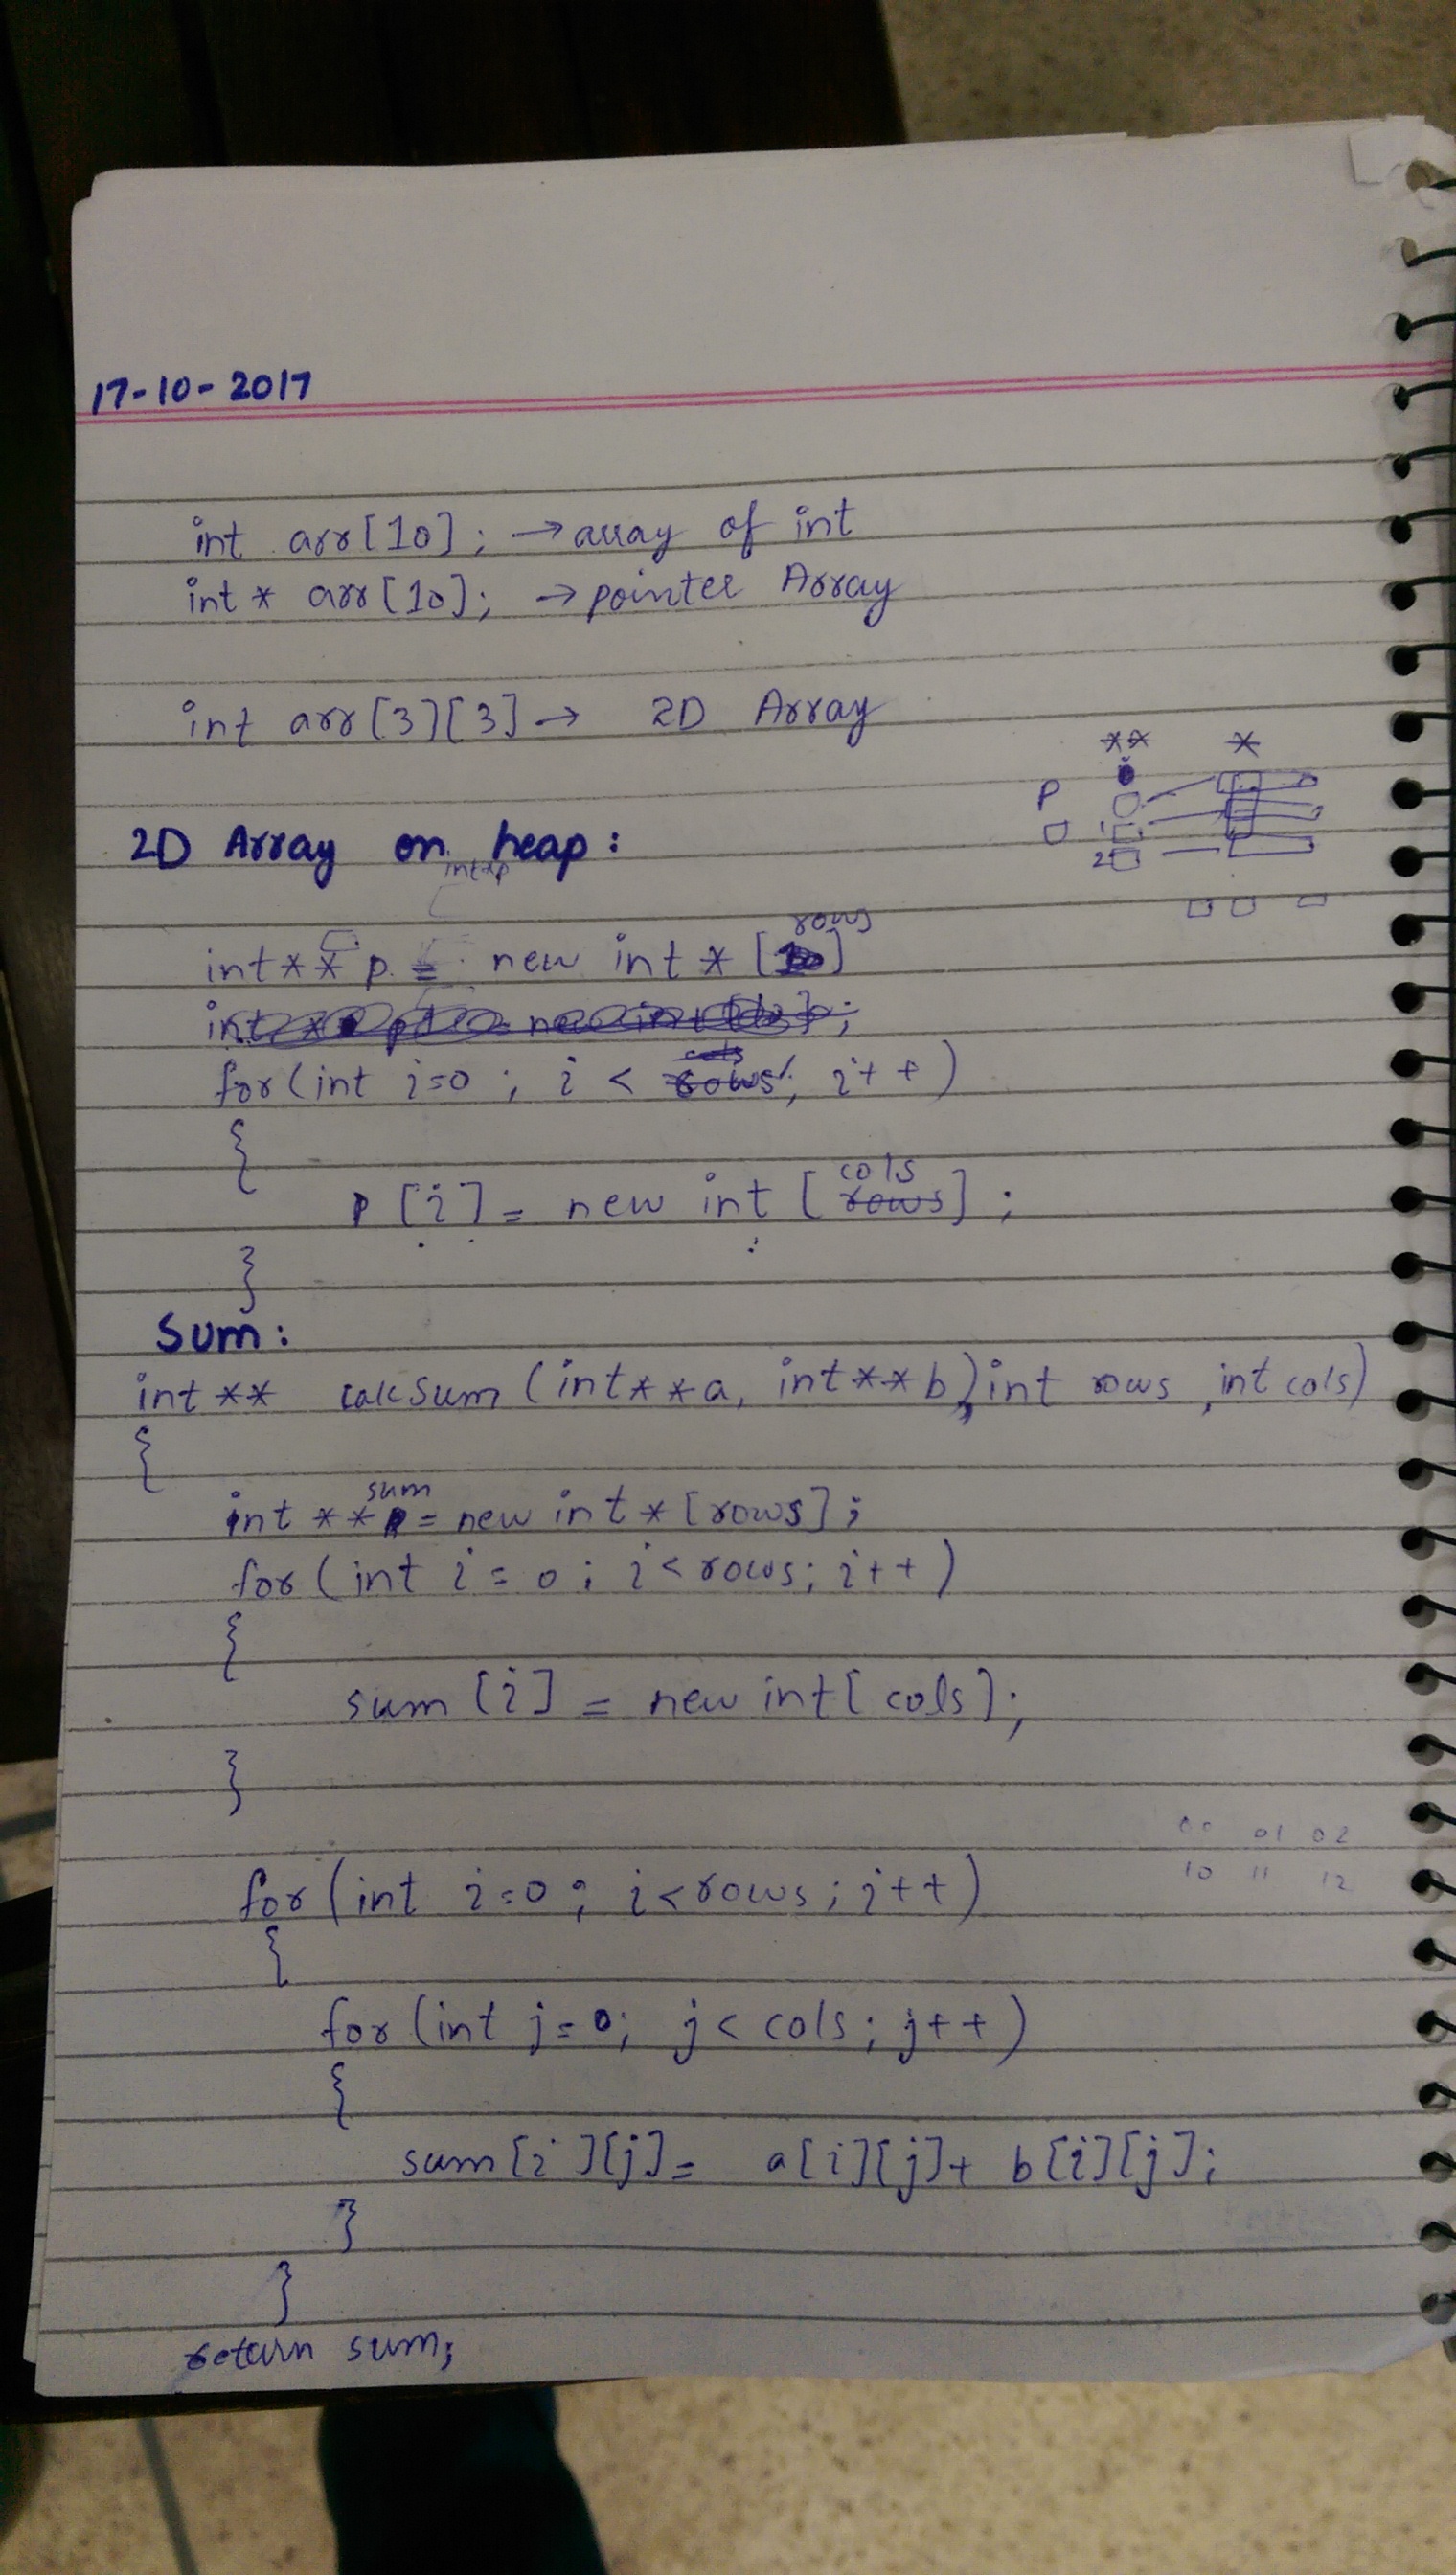 17-10-2017
int arr[10]; → array of int
int * arr[10]; → pointer Array
int arr[3][3] → 2D Array
** *
P
1
2
2D Array on heap:
int*p
rows
int** p = new int * [ ]
for(int i=0 ; i < rows; i++)
{
cols
p[i] = new int [rows];
}
Sum:
int ** calcSum (int**a, int**b, int rows, int cols)
{
sum
int ** = new int * [rows];
for(int i = 0 ; i<rows; i++)
{
sum[i] = new int[cols];
}
00 01 02
10 11 12
for(int i=0; i<rows; i++)
{
for(int j=0; j<cols; j++)
{
sum[i][j]= a[i][j]+ b[i][j];
}
}
return sum;